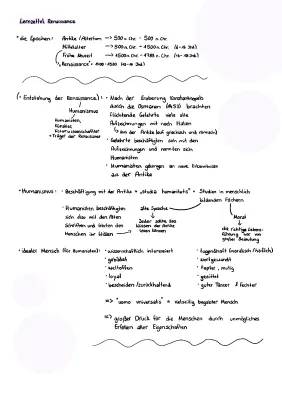 Lernzettel Renaissance
• die Epochen: Antike/Altertum => 500 v. Chr. - 500 n. Chr.
Mittelalter => 500 n. Chr. - 1500 n. Chr.
Frühe Neuzeit => 1500 n. Chr. - 1789 n. Chr.
• Entstehung der Renaissance:
• Nach der Eroberung Konstantinopels
durch die Osmanen (1453) brachten
flüchtende Gelehrte viele alte
Aufzeichnungen mit nach Italien
aus der Antike (auf griechisch und römisch)
• Gelehrte beschäftigten sich mit den
Aufzeichnungen und nannten sich
Humanisten
• Humanisten gelangen an neue Erkenntnisse
aus der Antike
Humanismus
Humanisten,
Künstler,
Naturwissenschaftler
= Träger der Renaissance
• Humanismus: • Beschäftigung mit der Antike = "studia humanitatis" = Studien in menschlich
bildenden Fächern
• Humanisten beschäftigten
sich also mit den Alten
Schriften und lösten den
Menschen
alte Sprache
Jeder sollte das
Wissen der Antike
lesen können
Moral
die richtige Lebens-
führung war von
großer Bedeutung
• idealer Mensch (für Humanisten): • wissenschaftlich interessiert
• gebildet
• weltoffen
• loyal
• bescheiden/zurückhaltend
• tugendhaft (moralisch/höflich)
• wortgewandt
• tapfer, mutig
• gesittet
• guter Tänzer & Fechter
=> "uomo universale" = vielseitig begabter Mensch
=> großer Druck für die Menschen durch unmögliches
Erfüllen aller Eigenschaften